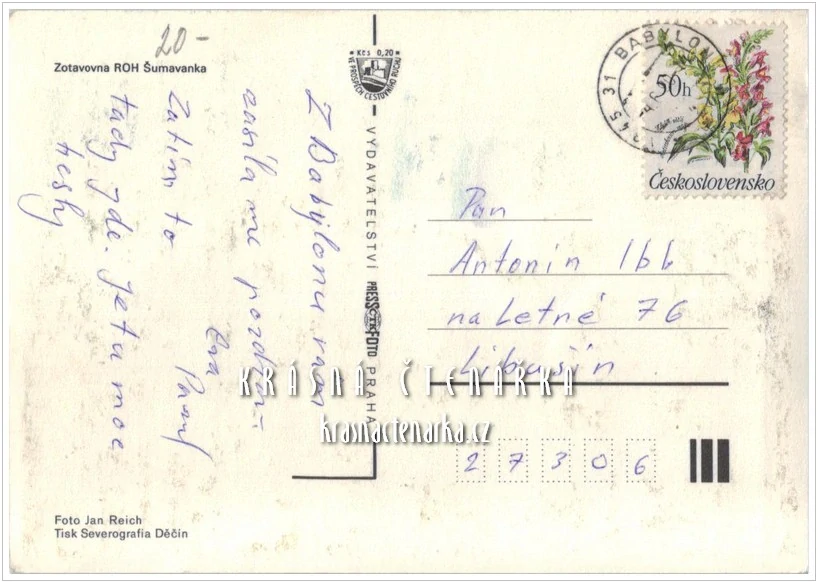 20-
Zotavovna ROH Šumavanka
Kčs 0,20
VE PROSPĚCH CESTOVNÍHO RUCHU
345 31 BABYLON
50h
Československo
Z Babylonu vám
zasíláme pozdrav
Eva
Zatím to
tady jde. Je tu moc
hezky
VYDAVATELSTVÍ PRESSFOTO PRAHA
Pan
Antonín Ibl
na Letné 76
Libušín
27306
KRÁSNÁ ČTENÁRKA
krasnactenarka.cz
Foto Jan Reich
Tisk Severografia Děčín